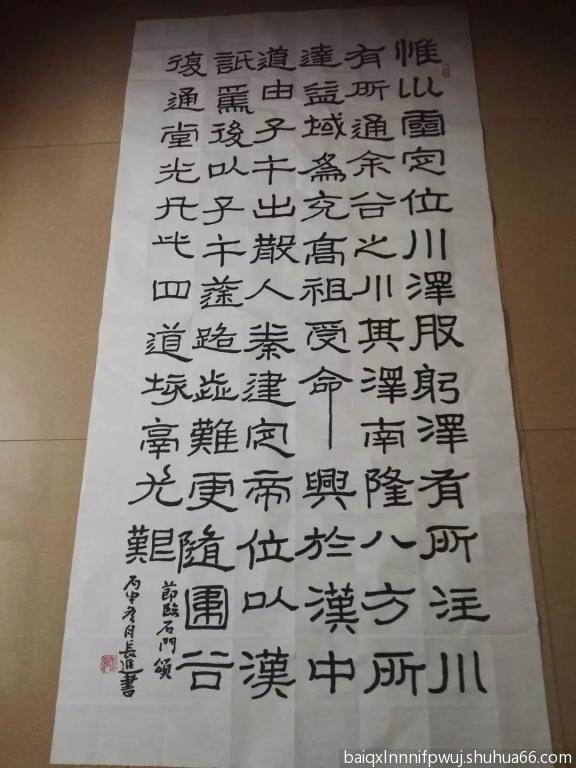 惟巛靈定位川澤股躬澤有所注川
有所通余谷之川其澤南隆八方所
達益域爲充高祖受命興於漢中
道由子午出散入秦建定帝位以漢
詆焉後以子午塗路歰難更隨圍谷
復通堂光凡此四道垓鬲尤艱
節臨石門頌
丙申冬月長進書
baiqxlnnnifpwuj.shuhua66.com